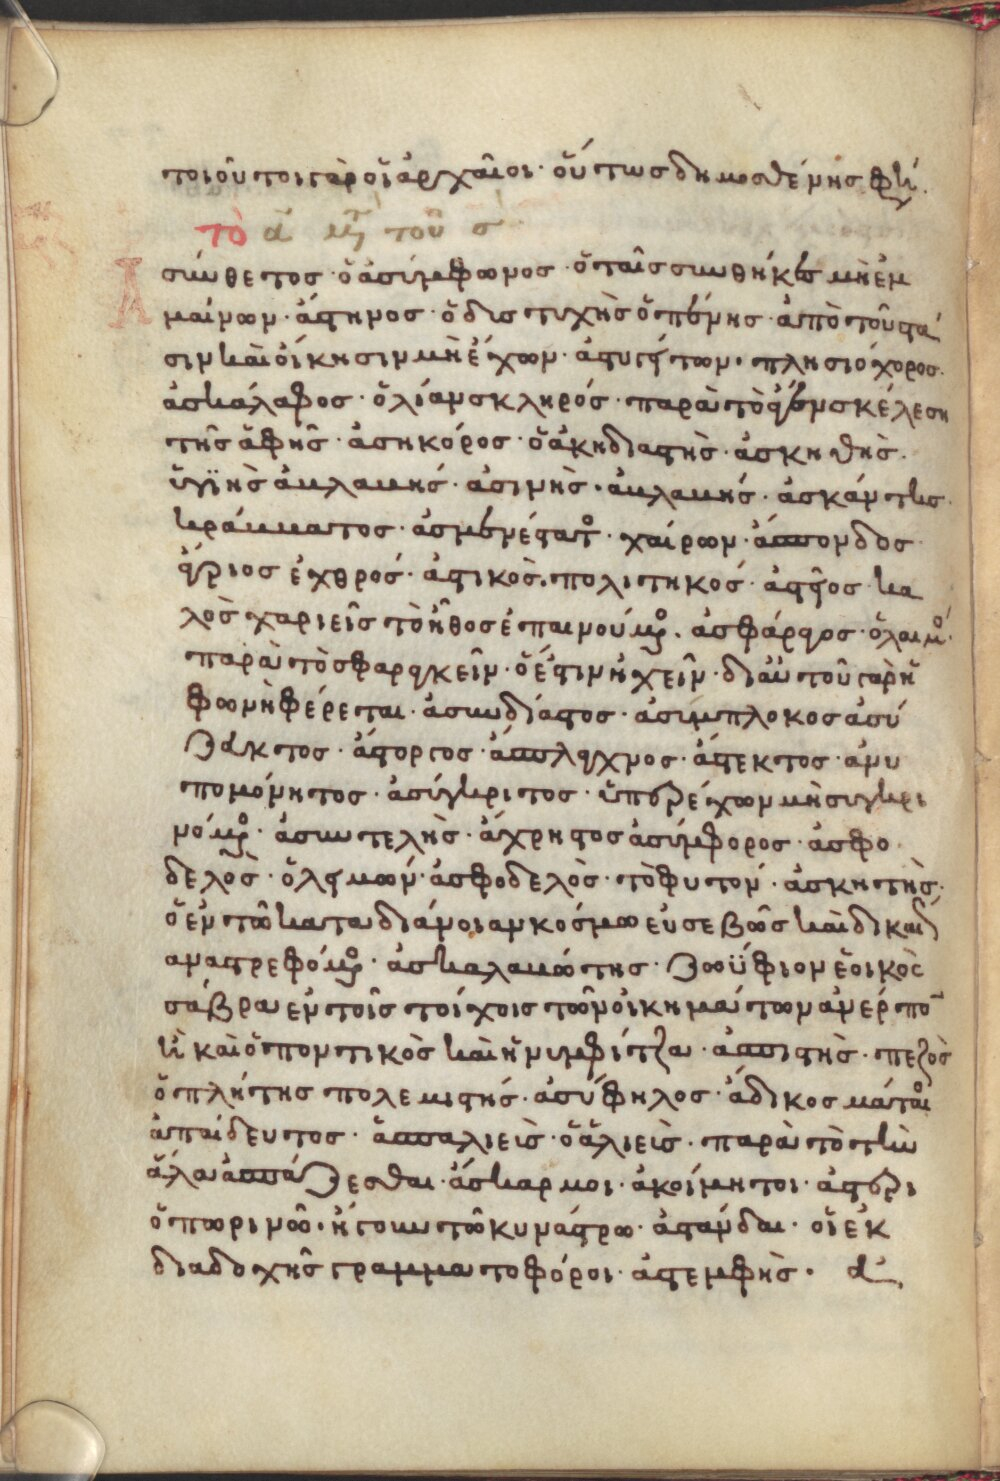 τοιοῦτοι γὰρ οἱ ἀρχαῖοι· οὕτως δημοσθένης φησί.
τὸ ᾱ μετὰ τοῦ σ
Ασύνθετος· ὁ ἀσύμφωνος· ὁ ταῖς συνθήκαις μὴ ἐμ
μαίνων· ἄστηνος· ὁ δυστυχὴς ὁ πένης· ἀπὸ τοῦ στά
σιν καὶ οἴκησιν μὴ ἔχων· ἀστυγείτων· πλησιόχορος·
ἀσκάλαφος· ὁ λίαν σκληρός· παρὰ τὸ
τῆς ἀφῆς· ἀσηκόρος· ὁ ἀκηδιαστὴς· ἀσκηθὴς·
ὑγιὴς ἀβλαβής· ἀσινὴς· ἀβλαβής· ἀσκάντης·
κράββατος· ἀσμενέστατος· χαίρων· ἄσπονδος·
ἄγριος ἐχθρός· ἀστικὸς· πολιτηκός· ἀστεῖος κα
λὸς χαριεῖς τὸ ἦθος ἐπαινούμενος· ἀσφάραγος· ὁ λαιμός·
παρὰ τὸ σφαραγκεῖν· ὅ ἐστιν ἠχεῖν· δι αὐτοῦ γὰρ ἡ
φωνὴ φέρεται· ἀσυνδίαστος· ἀσύμπλοκος ἀσύ
ζευκτος· ἄστοργος· ἄσπλαγχνος· ἄστεκτος· ἀνυ
πομόνητος· ἀσύγκριτος· ὑπερέχων μὴ συγκρι
νόμενος· ἀσυντελὴς· ἄχρηστος ἀσύμφορος· ἀσφο
δελὸς· ὁ λειμών· ἀσφοδελὸς· τὸ φυτόν· ἀσκητὴς·
ὁ ἐν τῶ κατα διάνοιαν κόσμω εὐσεβῶς καὶ δικαίως
αναστρεφόμενος· ἀσκαλαβώτης· ζωΰφιον ἐοικὸς
σάβρα ἐν τοῖς τοίχοις τῶν οἰκημάτων ἀνέρπον
καὶ ὁ ποντικὸς καὶ ἡ νυμφίτζα· ἀσπιστὴς· πεζὸς
ὁπλήτης πολεμιστής· ἀσύφηλος· ἄδικος μάταιος
ἀπαίδευτος· ἀσπαλιεὶς· ὁ ἁλιεὶς· παρὰ τὸ τὴν
ἅλα ἀσπάζεσθαι· ἄσκαρμοι· ἀκοίμητοι· ἀστέρι
ὀπωρινῶ· ἤγουν τῶ κυνάστρω· ἀστάνδαι· οἱ ἐκ
διαδοχῆς γραμματοφόροι· ἀστεμφὴς·